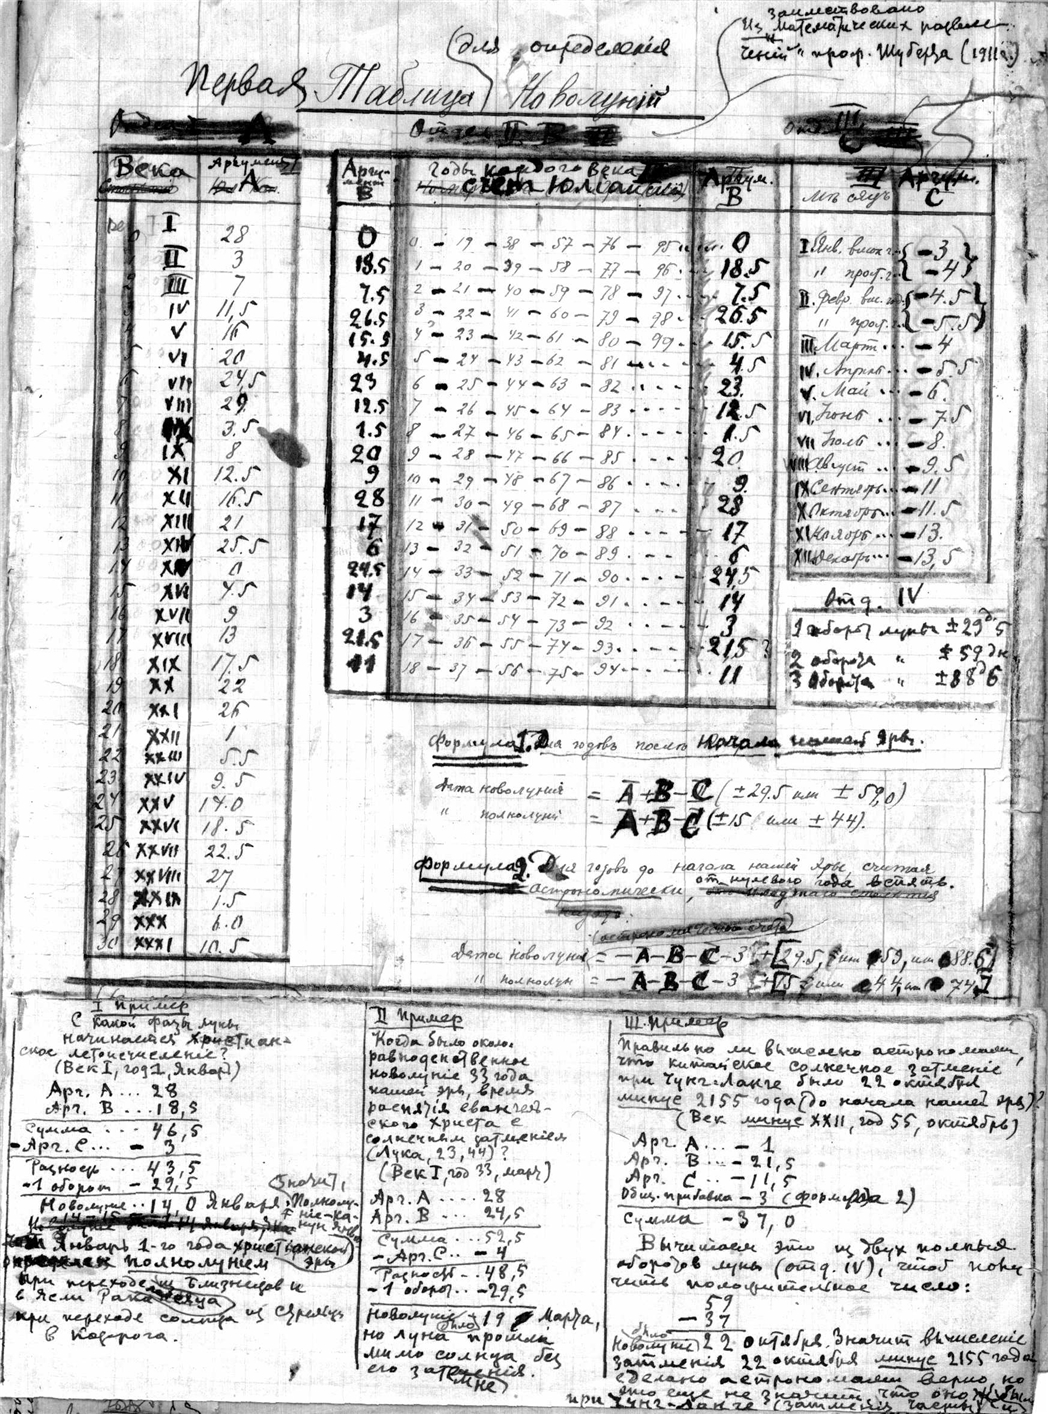 заимствовано
Из „Математических развле-
чений" проф. Шуберта (1911 г.)
(для определенія
Первая Таблица Новолуній
A
II B
III
Века Аргумент A
I 28
II 3
III 7
IV 11,5
V 16
VI 20
VII 24,5
VIII 29
3.5
IX 8
10 XI 12.5
11 XII 16.5
12 XIII 21
13 XIV 25.5
14 XV 0
15 XVI 4.5
16 XVII 9
17 XVIII 13
18 XIX 17.5
19 XX 22
20 XXI 26
21 XXII 1
22 XXIII 5.5
23 XXIV 9.5
24 XXV 14.0
25 XXVI 18.5
26 XXVII 22.5
27 XXVIII 27
28 XXIX 1.5
29 XXX 6.0
30 XXXI 10.5
Аргумент B Годы каждого века Аргум. B
счет Юлианский
0 0 - 19 - 38 - 57 - 76 - 95 0
18.5 1 - 20 - 39 - 58 - 77 - 96 18.5
7.5 2 - 21 - 40 - 59 - 78 - 97 7.5
26.5 3 - 22 - 41 - 60 - 79 - 98 26.5
15.5 4 - 23 - 42 - 61 - 80 - 99 15.5
4.5 5 - 24 - 43 - 62 - 81 4.5
23 6 - 25 - 44 - 63 - 82 23
12.5 7 - 26 - 45 - 64 - 83 12.5
1.5 8 - 27 - 46 - 65 - 84 1.5
20 9 - 28 - 47 - 66 - 85 20
9 10 - 29 - 48 - 67 - 86 9
28 11 - 30 - 49 - 68 - 87 28
17 12 - 31 - 50 - 69 - 88 17
6 13 - 32 - 51 - 70 - 89 6
24.5 14 - 33 - 52 - 71 - 90 24,5
14 15 - 34 - 53 - 72 - 91 14
3 16 - 35 - 54 - 73 - 92 3
21.5 17 - 36 - 55 - 74 - 93 21,5 ?
11 18 - 37 - 56 - 75 - 94 11
III Аргум.
Мѣсяцъ C
I Янв. висок. г. -3
" прост. г. -4
II. Февр. вис. год. -4.5
" прост. г. -5.5
III Март -4
IV. Апрель -5.5
V. Май -6.
VI. Іюнь -7.5
VII Іюль -8.
VIII Август -9.5
IX Сентябрь -11
X Октябрь -11.5
XI Ноябрь -13.
XII Декабрь -13,5
Отд. IV
1 оборот луны ± 29д5
2 оборота " ± 59 дн.
3 оборота " ± 88д6
Формула 1. Для годовъ после начала нашей эры.
Дата новолунія = A+B-C (±29.5 или ± 59,0)
" полнолуній = A+B-C (±15 или ± 44).
Формула 2. Для годовъ до начала нашей эры, считая
астрономически, от нулевого года вспять.
Дата новолунія = -A-B-C-3 + [29.5, или 59, или 88.6]
" полнолун = -A-B-C-3 + [15, или 44, или 74,]
I Пример
С какой фазы луны
начинается христиан-
ское летоисчисленіе?
(Век I, год 1, Январь)
Арг. A ... 28
Арг. B ... 18,5
Сумма ... 46,5
-Арг. C ... - 3
Разность ... 43,5
-1 оборот - 29,5
Новолуніе .. 14,0 Января.
Значит,
Полнолу-
ніе
Январь 1-го года христіанской эры
полнолунием
при переходе из Близнецов
в Ясли Рака
при переходе солнца из Стрельца
в Козерога.
II Пример
Когда было около-
равноденственное
новолуніе 33 года
нашей эры, время
распятія евангель-
ского Христа с
солнечным затменіем
(Лука, 23, 44)?
(Век I, год 33, март)
Арг. A .... 28
Арг. B .... 24,5
Сумма .... 52,5
- Арг. C ... - 4
Разность .. 48,5
- 1 оборот .. -29,5
Новолуніе было 19 Марта,
но луна прошла
мимо солнца без
его затменія.
III. Пример
Правильно ли вычислено астрономами,
что китайское солнечное затменіе
при Чунг-Канге было 22 октября
минус 2155 года (до начала нашей эры)?
(Век минус XXII, год 55, октябрь)
Арг. A ... - 1
Арг. B ... - 21,5
Арг. C ... - 11,5
Общ. прибавка - 3 (формула 2)
Сумма - 37,0
Вычитаем это из двух полных
оборотов луны (отд. IV), чтоб полу-
чить положительное число:
59
- 37
Новолуніе было 22 октября. Значит вычисленіе
затменія 22 октября минус 2155 года
сделано астрономами верно, но
это еще не значит, что оно было
при Чунг-Канге (затменія часты)